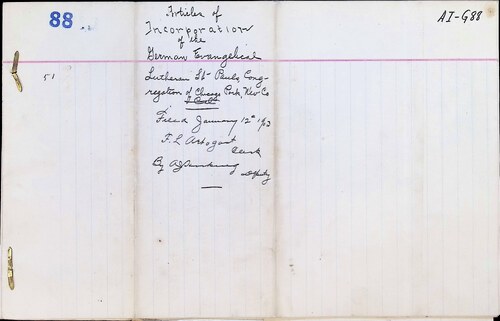 88
AI-G88
51
Articles of
Incorporation
of the
German Evangelical
Lutheran St Pauls Cong-
regation of Chicago Park, Nev Co
Filed January 12th 1903
F. L. Arbogast
Clerk
By
Deputy